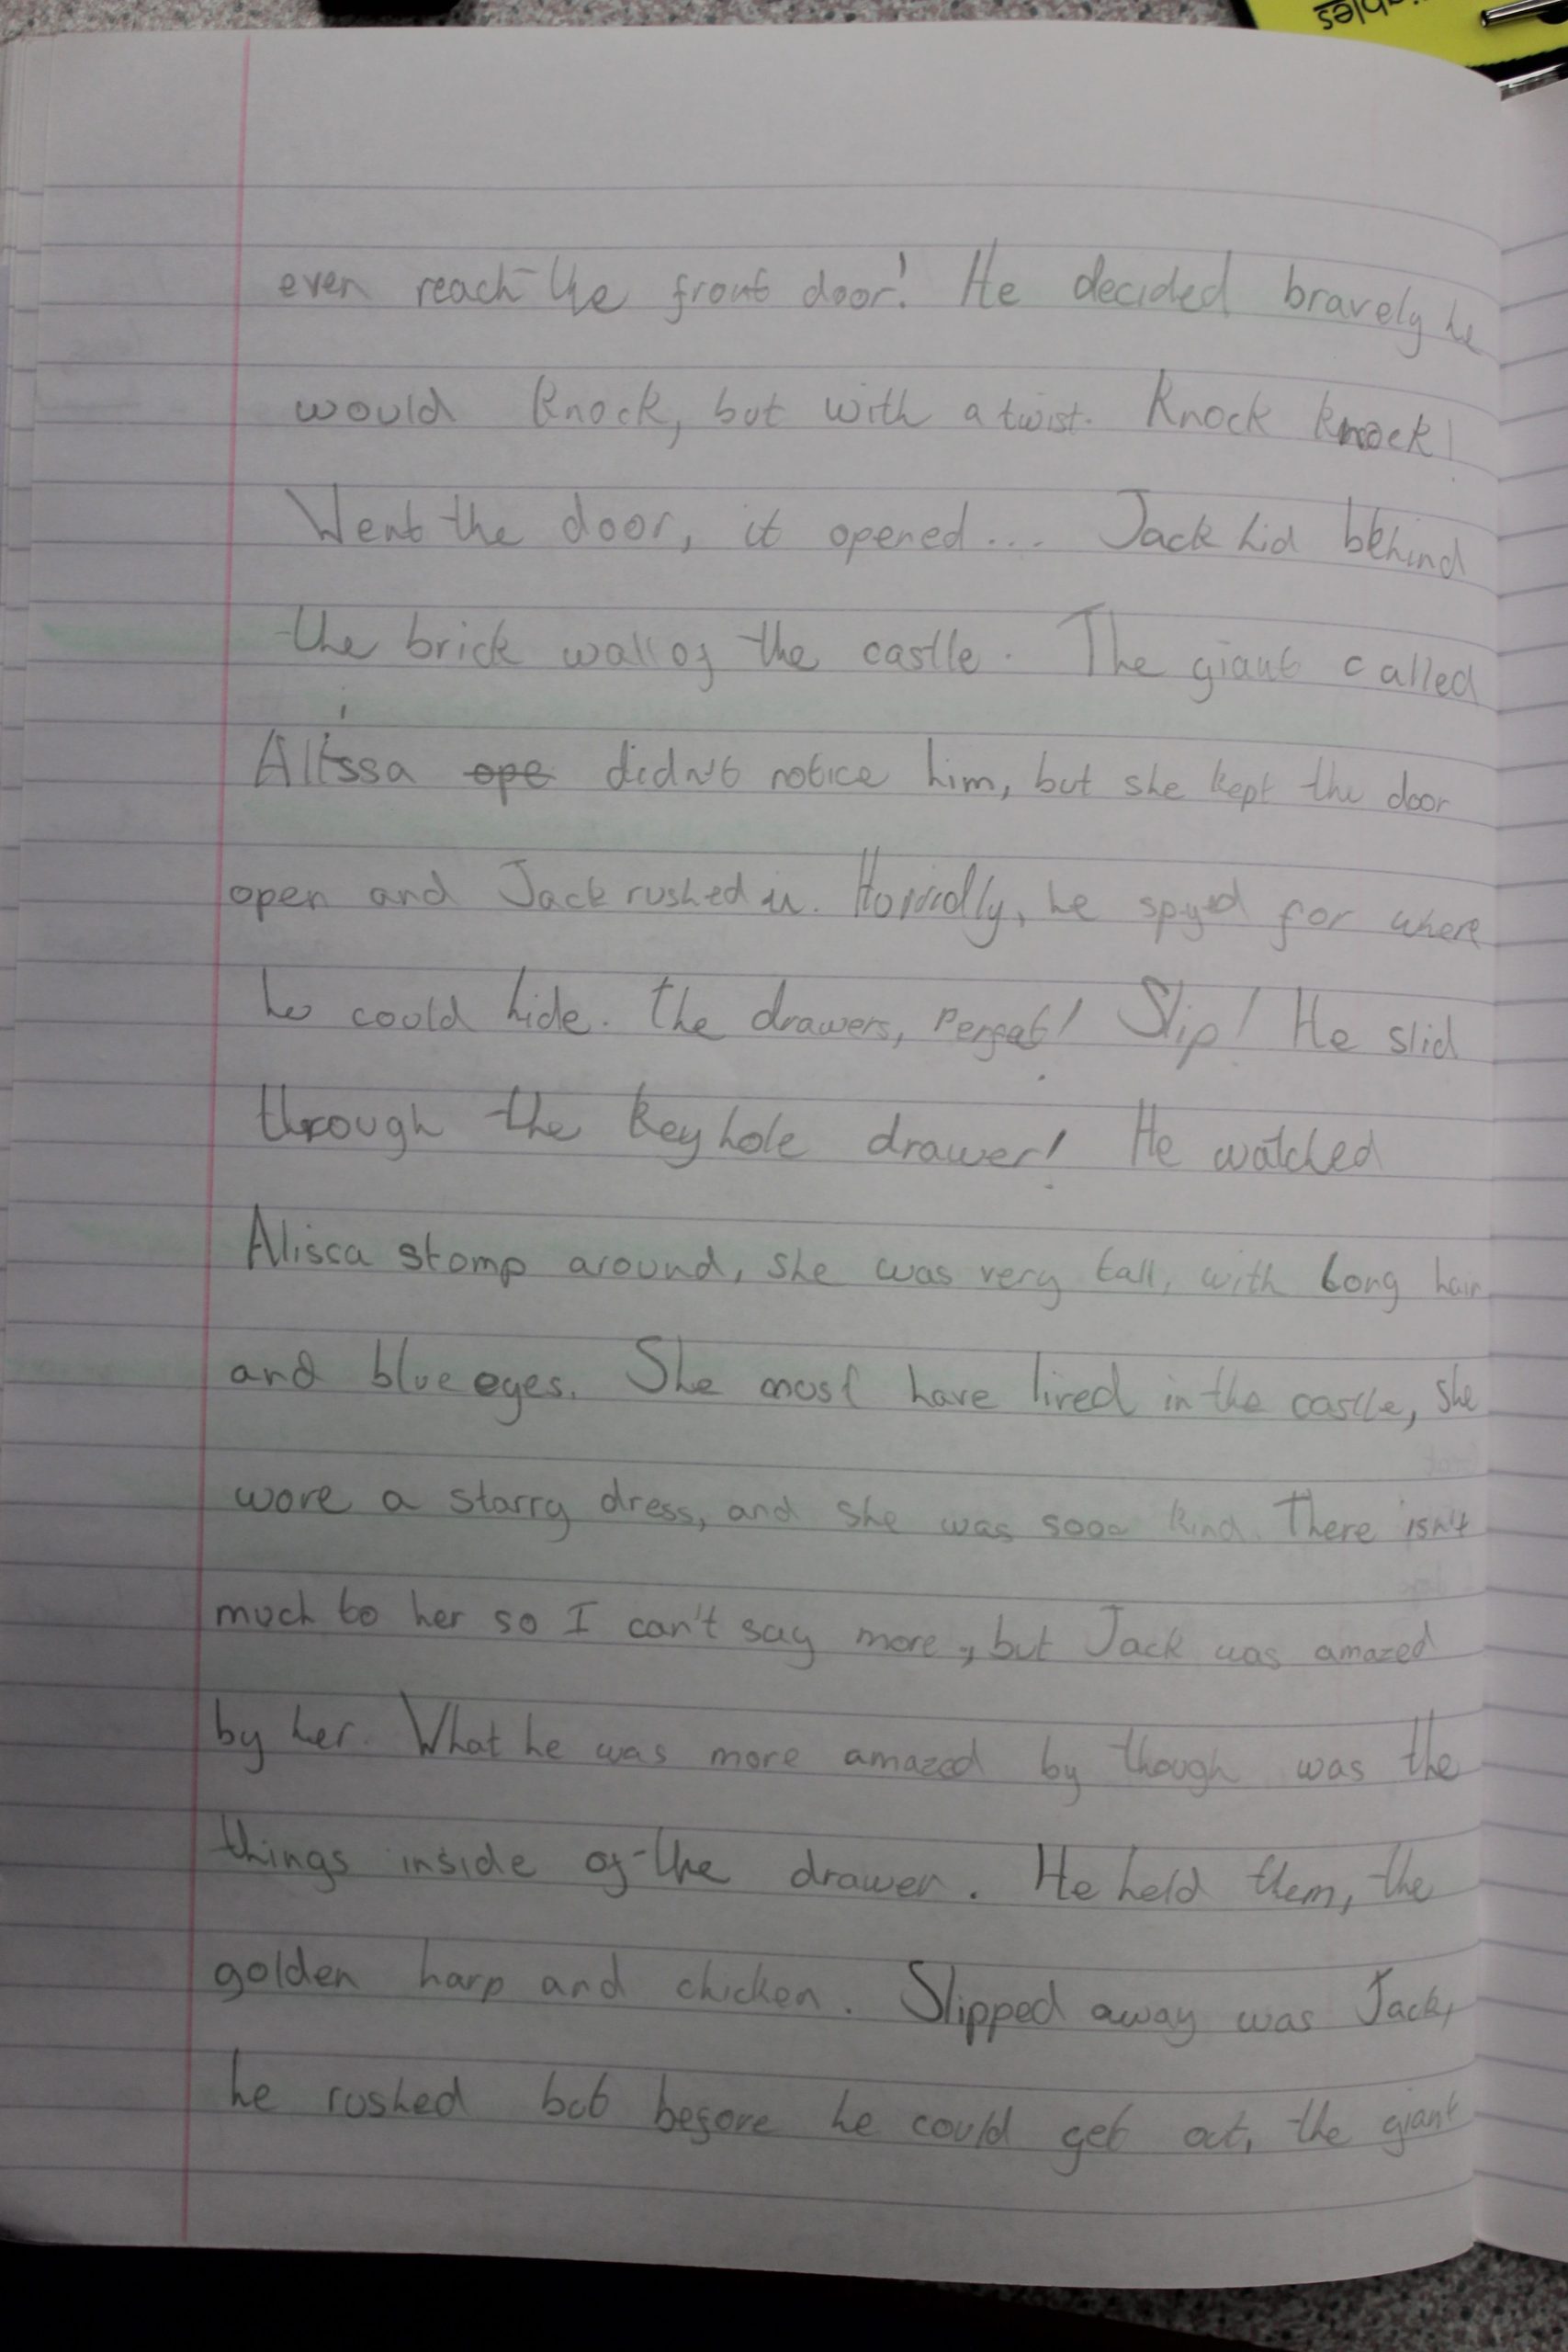 ables
even reach the front door! He decided bravely he
would knock, but with a twist. Knock knock!
Went the door, it opened... Jack hid behind
the brick wall of the castle. The giant called
Alissa ope didn't notice him, but she kept the door
open and Jack rushed in. he spyed for where
he could hide. The drawers, Perfat! Slip! He slid
through the keyhole drawer! He watched
Alissa stomp around, she was very tall, with long hair
and blue eyes. She must have lived in the castle, she
wore a starry dress, and she was sooo kind. There isn't
much to her so I can't say more, but Jack was amazed
by her. What he was more amazed by though was the
things inside of the drawer. He held them, the
golden harp and chicken. Slipped away was Jack,
he rushed but before he could get out, the giant